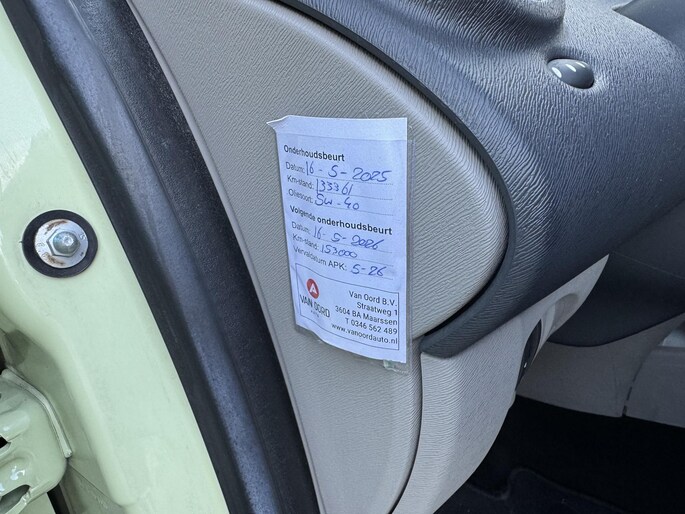 Onderhoudsbeurt
Datum: 16-5-2025
Km-stand: 133361
Oliesoort: 5w-40
Volgende onderhoudsbeurt
Datum: 16-5-2026
Km-stand: 153000
Vervaldatum APK: 5-26
VAN OORD
Van Oord B.V.
Straatweg 1
3604 BA Maarssen
T 0346 562 489
www.vanoordauto.nl